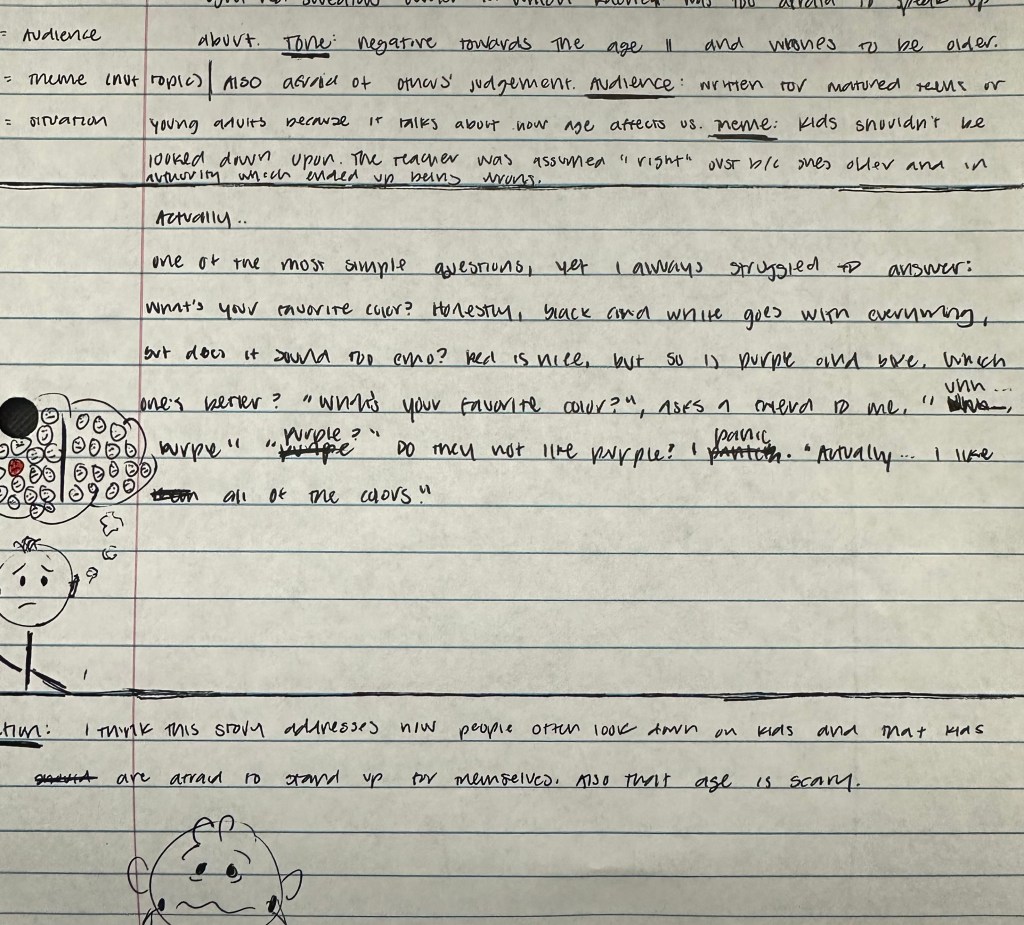 was too afraid to speak up
= Audience
about. Tone: negative towards the age 11 and wishes to be older.
= Theme (not topic) | Also afraid of others' judgement. Audience: written for matured teens or
= situation
young adults because it talks about how age affects us. Theme: Kids shouldn't be
looked down upon. The teacher was assumed "right" just b/c shes older and in
authority which ended up being wrong.
Actually..
one of the most simple questions, yet I always struggled to answer:
What's your favorite color? Honestly, black and white goes with everything,
but does it sound too emo? Red is nice, but so is purple and blue. Which
one's better? "What's your favorite color?", asks a friend to me. "uhh...
purple" "purple?" Do they not like purple? I panic. "Actually... I like
all of the colors."
tion: I think this story addresses how people often look down on kids and that kids
are afraid to stand up for themselves. Also that age is scary.